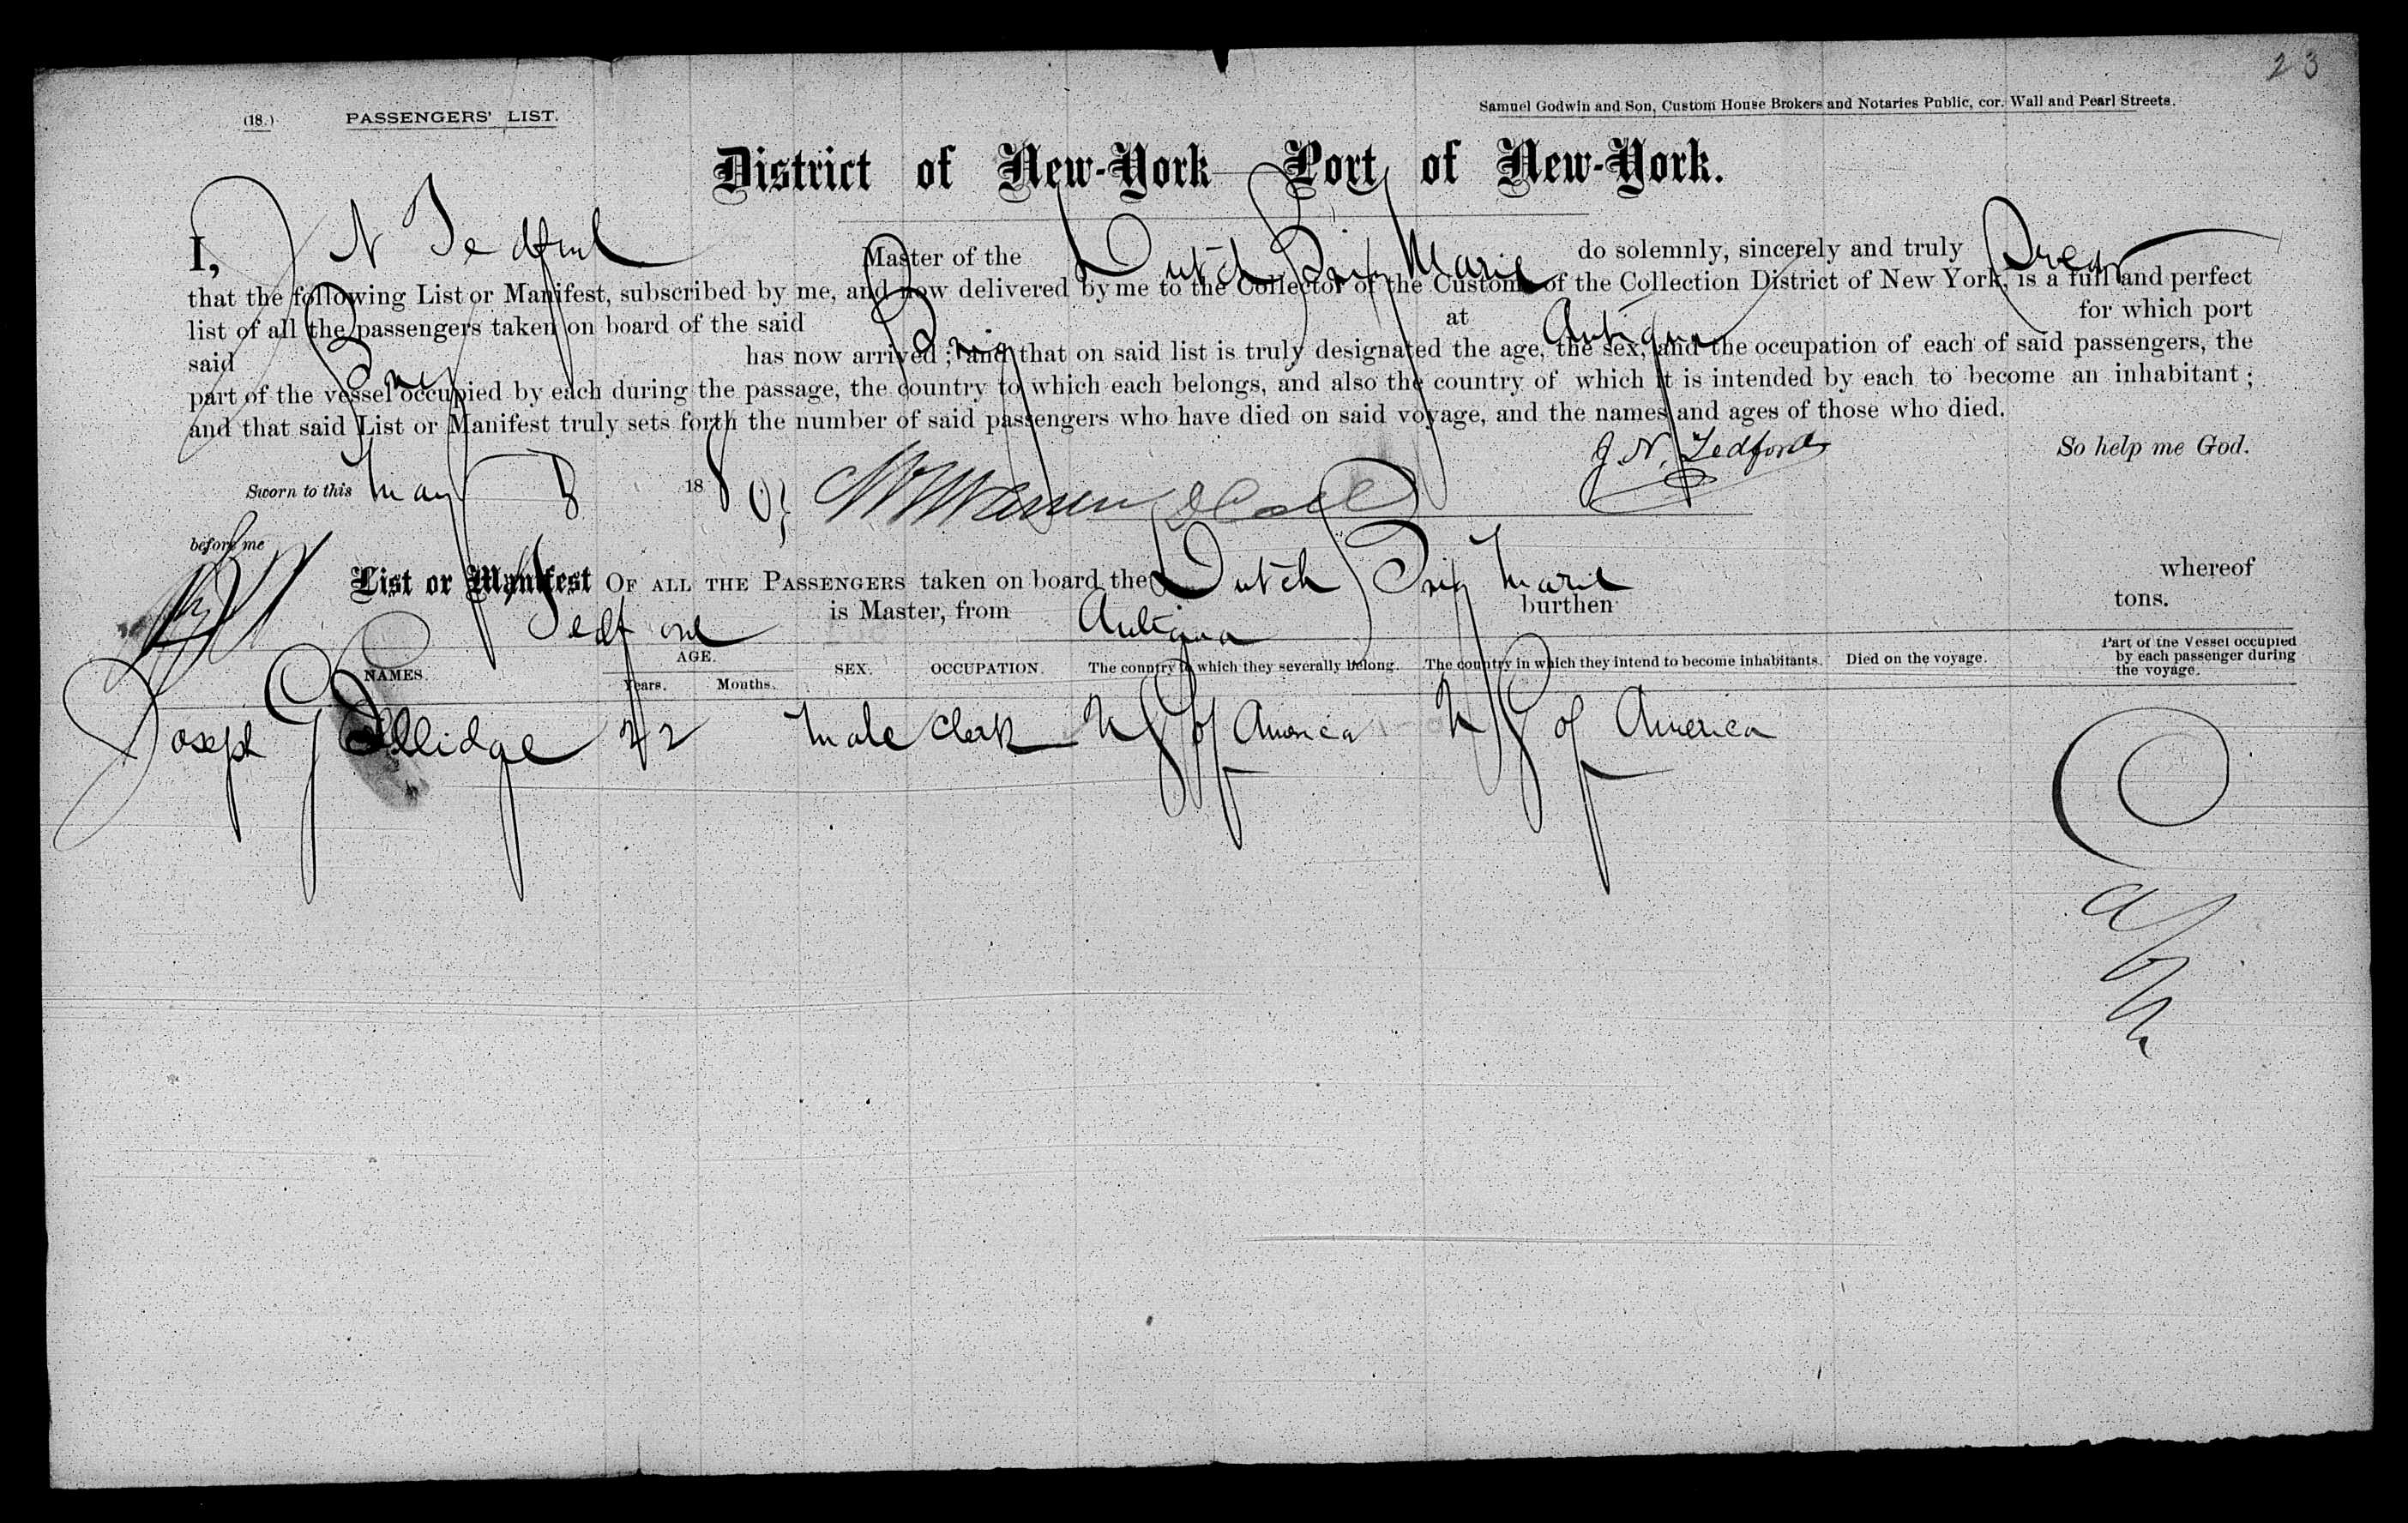 23
(18.) PASSENGERS' LIST. Samuel Godwin and Son, Custom House Brokers and Notaries Public, cor. Wall and Pearl Streets.
District of New-York Port of New-York.
I, J N Tedford Master of the Dutch Brig Marie do solemnly, sincerely and truly Swear
that the following List or Manifest, subscribed by me, and now delivered by me to the Collector of the Customs of the Collection District of New York, is a full and perfect
list of all the passengers taken on board of the said Brig at Antigua for which port
said Brig has now arrived; and that on said list is truly designated the age, the sex, and the occupation of each of said passengers, the
part of the vessel occupied by each during the passage, the country to which each belongs, and also the country of which it is intended by each to become an inhabitant;
and that said List or Manifest truly sets forth the number of said passengers who have died on said voyage, and the names and ages of those who died.
J. N. Tedford So help me God.
Sworn to this May 8 1880}
before me
List or Manifest OF ALL THE PASSENGERS taken on board the Dutch Brig Marie whereof
Tedford is Master, from Antigua burthen tons.
NAMES. AGE. Years. Months. SEX. OCCUPATION. The country to which they severally belong. The country in which they intend to become inhabitants. Died on the voyage. Part of the Vessel occupied by each passenger during the voyage.
Joseph G Ellidge 22 Male Clerk U S of America U S of America Cabin